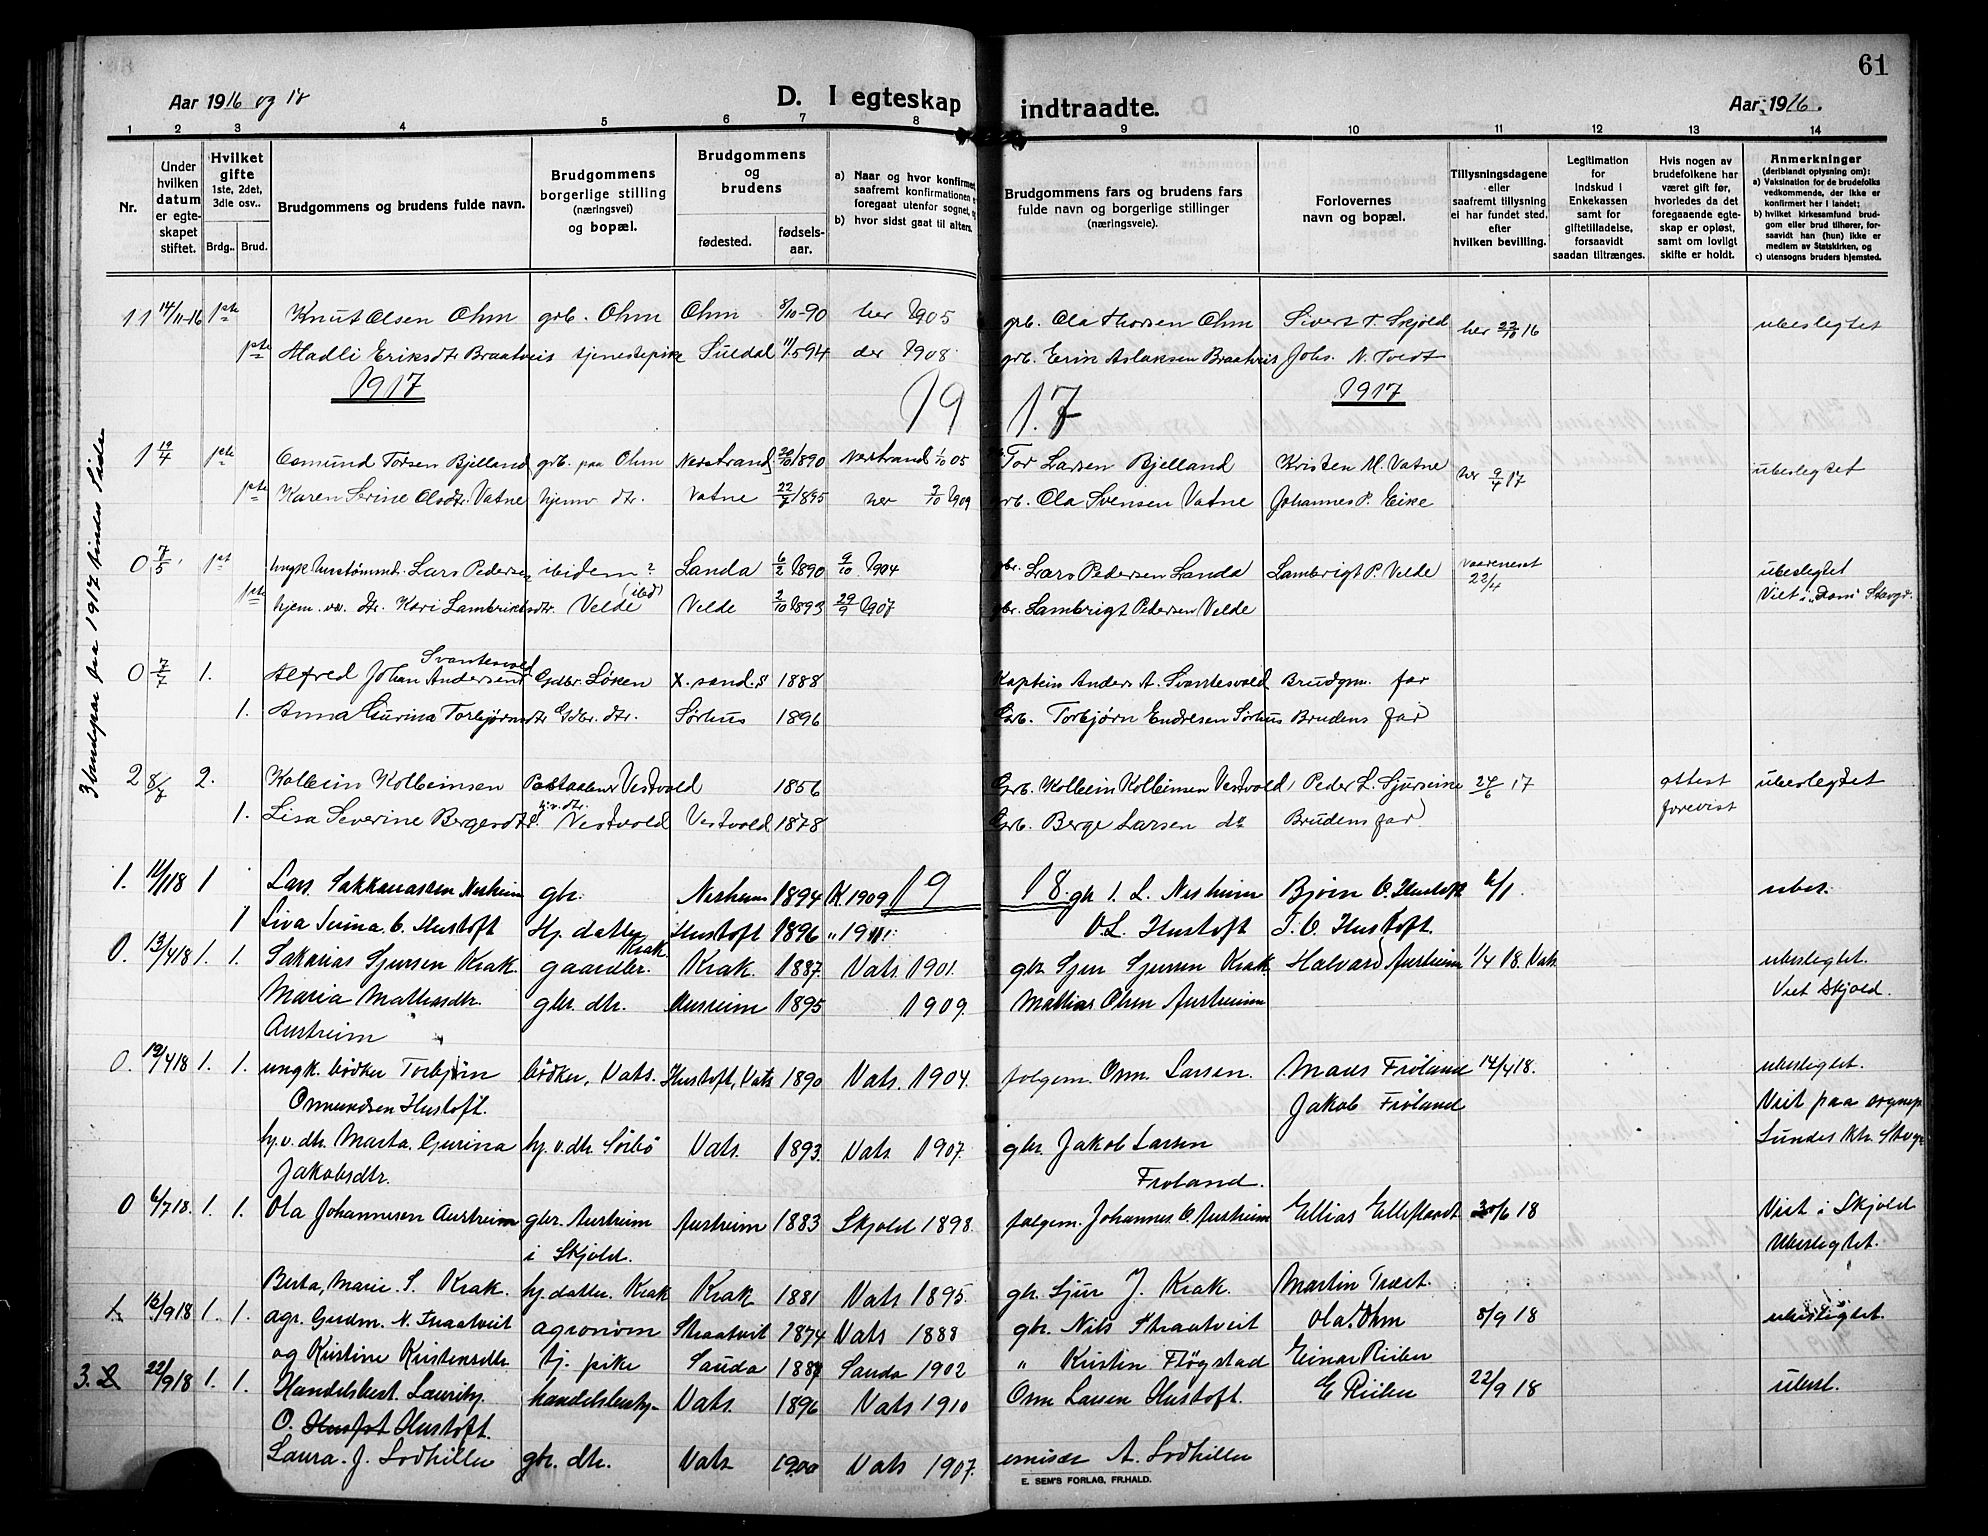 61
Aar 1916 og 18
D. I egteskap indtraadte.
Aar 1916.
1 2 3 4 5 6 7 8 9 10 11 12 13 14
Nr.
Under hvilken datum er egteskapet stiftet.
Hvilket gifte 1ste, 2det, 3dle osv..
Brdg.. Brud.
Brudgommens og brudens fulde navn.
Brudgommens borgerlige stilling (næringsvei) og bopæl.
Brudgommens og brudens
fødested. fødselsaar.
a) Naar og hvor konfirmert, saafremt konfirmationen er foregaat utenfor sognet, og
b) hvor sidst gaat til alters.
Brudgommens fars og brudens fars fulde navn og borgerlige stillinger (næringsveie).
Forlovernes navn og bopæl.
Tillysningsdagene eller saafremt tillysning ei har fundet sted. efter hvilken bevilling.
Legitimation for indskud i Enkekassen samt for giftetilladelse, forsaavidt saadan tiltrænges.
Hvis nogen av brudefolkene har været gift før, hvorledes da det foregaaende egteskap er opløst, samt om lovligt skifte er holdt.
Anmerkninger (deriblandt oplysning om): a) Vaksination for de brudefolks vedkommende, der ikke er konfirmert her i landet; b) hvilket kirkesamfund brudgom eller brud tilhører, forsaavidt han (hun) ikke er medlem av Statskirken, og c) utensogns bruders hjemsted.
11 14/11-16 1ste Knut Olsen Ohm grb. Ohm Ohm 8/10-90 her 1905 grb. Ola Thorsen Ohm Sivert T. Skjold her 22/10 16 ubeslegtet
1ste Madli Eriksdtr Braatveit tjenestepike Suldal 11/5-94 der 1908 grb. Erik Aslaksen Braatveit Johs. N. Tvedt
1917 19 17 1917
1 19/4 1ste Osmund Torsen Bjelland grb. paa Ohm Nerstrand 20/10 1890 Nerstrand 1/10 05 Tor Larsen Bjelland Kristen M. Vatne her 9/4 17 ubeslegtet
1ste Karen Serine Olsdtr. Vatne hjemv. dtr. Vatne 22/7 1895 her 3/10 1909 grb. Ola Svensen Vatne Johannes P. Eike
0 7/5 1ste Lars Pedersen ibidem? Landa 6/2 1890 9/10 1904 Lars Pedersen Landa Lambrigt P. Velde 22/4 ubeslegtet
1ste hjem. vær. dtr. Kari Lambriktsdtr. Velde (ibd) Velde 2/10 1893 29/9 1907 gbr. Lambrigt Pedersen Velde Viet i "Dom" Stavgr.
3 brudepar fra 1917 findes Side
Svantesvold
0 7/7 1. Alfred Johan Andersen Gdbr. Løken K. sand. S 1888 Kaptein Anders A. Svantesvold Brudgm. far
1. Anna Gurina Torbjørnsdtr Gdbr. dtr. Sørhus 1896 Grb. Torbjørn Endresen Sørhus Brudens far
2 8/7 2. Kolbein Kolbeinsen Postaabner Vestvold 1856 Grb. Kolbein Kolbeinsen Vestvold, Peder L. Sjurseike 24/6 17 attest ubeslegtet
1. Lisa Severine Bergesdtr. hj. v. dtr. Vestvold Vestvold 1878 Grb. Berge Larsen do Brudens far forevist
1. 11/1 18 1 Lars Sakkariassen Nesheim gbr. Nesheim 1894 K. 1909 19 18 gbr. S. L. Nesheim Bjørn O. Hustoft 6/1. ubes.
1 O. Hustoft Hj. datter Hustoft 1896 " 1911 O L. Hustoft T. O. Hustoft.
0. 13/4 18 1. 1. Sakarias Sjursen Krak. gaardbr. Krak Krak. 1887. Vats. 1901. gbr Sjur Sjursen Krak. Halvard Austreim 1/4 18. Vats ubeslegtet.
Maria Mathiasdtr. gbr. dtr. Austreim 1895 1909. Mathias Olsen Austreim Viet Skjold.
Austreim
0. 19/4 18 1. 1. ungk. bødker Torbjørn bødker, Vats. Hustoft, Vats 1890 Vats. 1904. folgem. Osm. Larsen. Maus Frøland 14/4 18. ubeslegtet.
Osmundsen Hustoft. Jakob Frøland Viet paa sognepr.
hj. v. dtr. Marta. Gurina hj. v. dtr. Sørbø Vats. 1893. Vats. 1907. gbr. Jakob Larsen Lundes ktr. Stavgr
Jakobsdtr. Frøland.
0 6/7 18. 1. 1. Ola Johannesen Austreim gbr. Austreim Austreim 1883 Skjold 1898. folgem. Johannes O. Austreim Ellias Elleflaadt 30/6 18 Viet i Skjold
i Skjold. Ubeslegtet.
Berta, Marie S. Krak. hj. datter. Krak Krak 1881 Vats 1895. gbr. Sjur J. Krak. Martin Træet.
1. 15/9 18 1. 1. agr. Gudm. N. Straatveit agronom Straatveit 1874 Vats 1888 gbr. Nils Straatveit Ola. Ohm 8/9 18 ubeslegtet.
og Kristine Kristensdtr tj. pike Sauda 1887 Sauda 1902 " Kristin Fløgstad Einar Riiber
3. 2 22/9 18 1. 1. Handelsbest. Lauritz handelsbesty- Vats. 1896 Vats 1910 Osm Larsen Hustoft. E Riiber 22/9 18 ubesl.
O. Hustoft Hustoft.
Laura. J. Lodhiller gbr. dtr. Vats 1900 Vats 1907. A. Lodhiller
E. SEM'S FORLAG, FR.HALD.